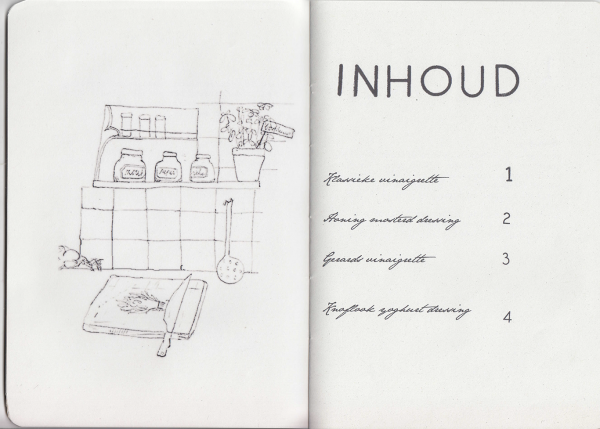 INHOUD
Klassieke vinaigrette 1
Honing mosterd dressing 2
Gerards vinaigrette 3
Knoflook yoghurt dressing 4